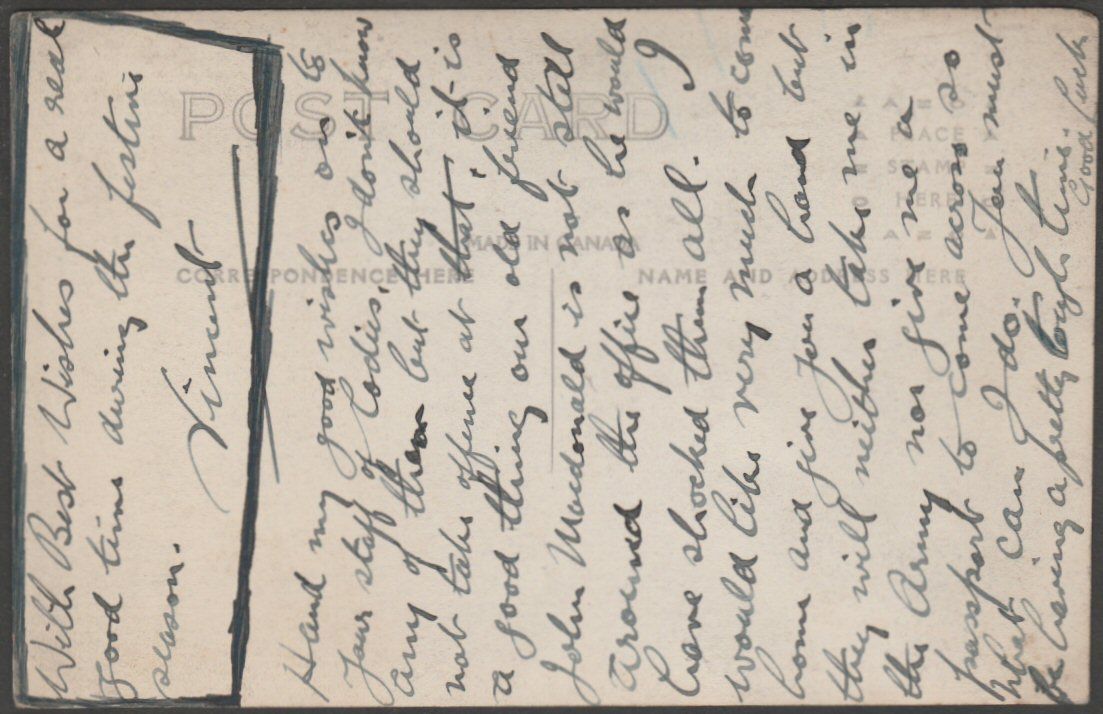 With Best Wishes for a real
good time during the festive
season.
Vincent
Hand my good wishes on to
your staff of ladies, I don't know
any of them but they should
not take offence at that, it is
a good thing our old friend
John Macdonald is not still
around the office as he would
have shocked them all. I
would like very much to come
home and give you a hand but
they will neither take me in
the Army nor give me a
passport to come across so
what can I do. You must
be having a pretty tough time.
Good luck
POST CARD
PLACE
STAMP
HERE
MADE IN CANADA
CORRESPONDENCE HERE
NAME AND ADDRESS HERE